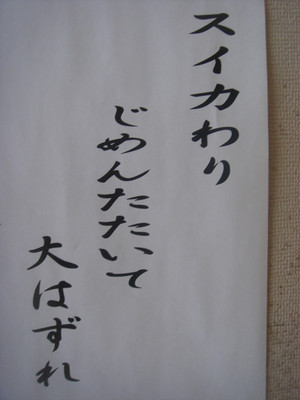 スイカわり
じめんたたいて
大はずれ